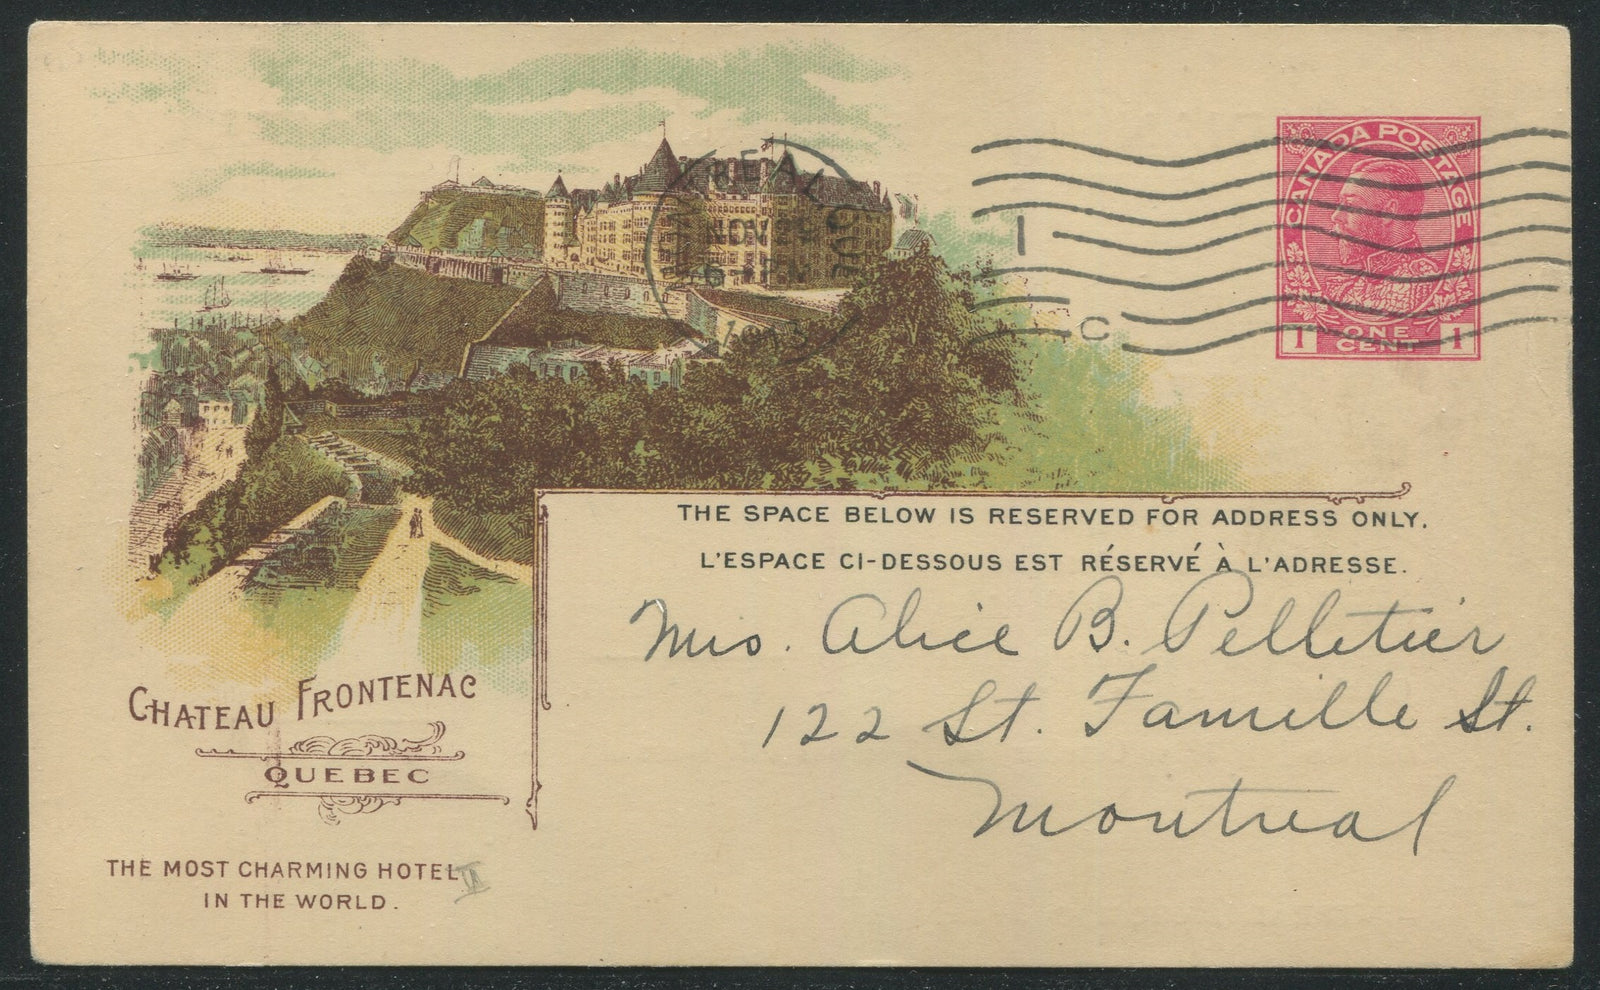 CANADA POSTAGE
1 ONE CENT 1
MONTREAL QUE
NOV 25
1913
I
C
THE SPACE BELOW IS RESERVED FOR ADDRESS ONLY.
L'ESPACE CI-DESSOUS EST RÉSERVÉ À L'ADRESSE.
Mrs. Alice B. Pelletier
122 St. Famille St.
Montreal
CHATEAU FRONTENAC
QUEBEC
THE MOST CHARMING HOTEL
IN THE WORLD.